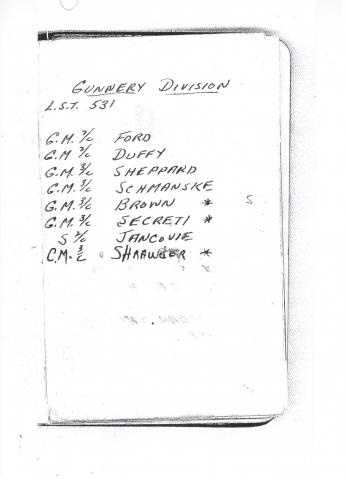 GUNNERY DIVISION
L.S.T. 531
G.M. 2/c FORD
G.M. 2/c DUFFY
G.M. 3/c SHEPPARD
G.M. 3/c SCHMANSKE
G.M. 3/c BROWN * S
G.M. 3/c SECRETI *
S 2/c JANCOVIE
C.M. 3/c *